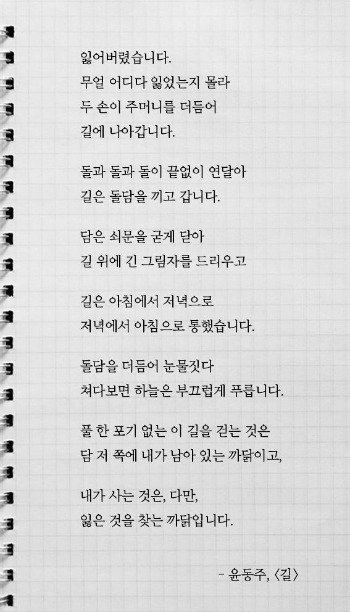 잃어버렸습니다.
무얼 어디다 잃었는지 몰라
두 손이 주머니를 더듬어
길에 나아갑니다.
돌과 돌과 돌이 끝없이 연달아
길은 돌담을 끼고 갑니다.
담은 쇠문을 굳게 닫아
길 위에 긴 그림자를 드리우고
길은 아침에서 저녁으로
저녁에서 아침으로 통했습니다.
돌담을 더듬어 눈물짓다
쳐다보면 하늘은 부끄럽게 푸릅니다.
풀 한 포기 없는 이 길을 걷는 것은
담 저 쪽에 내가 남아 있는 까닭이고,
내가 사는 것은, 다만,
잃은 것을 찾는 까닭입니다.
- 윤동주, 〈길〉